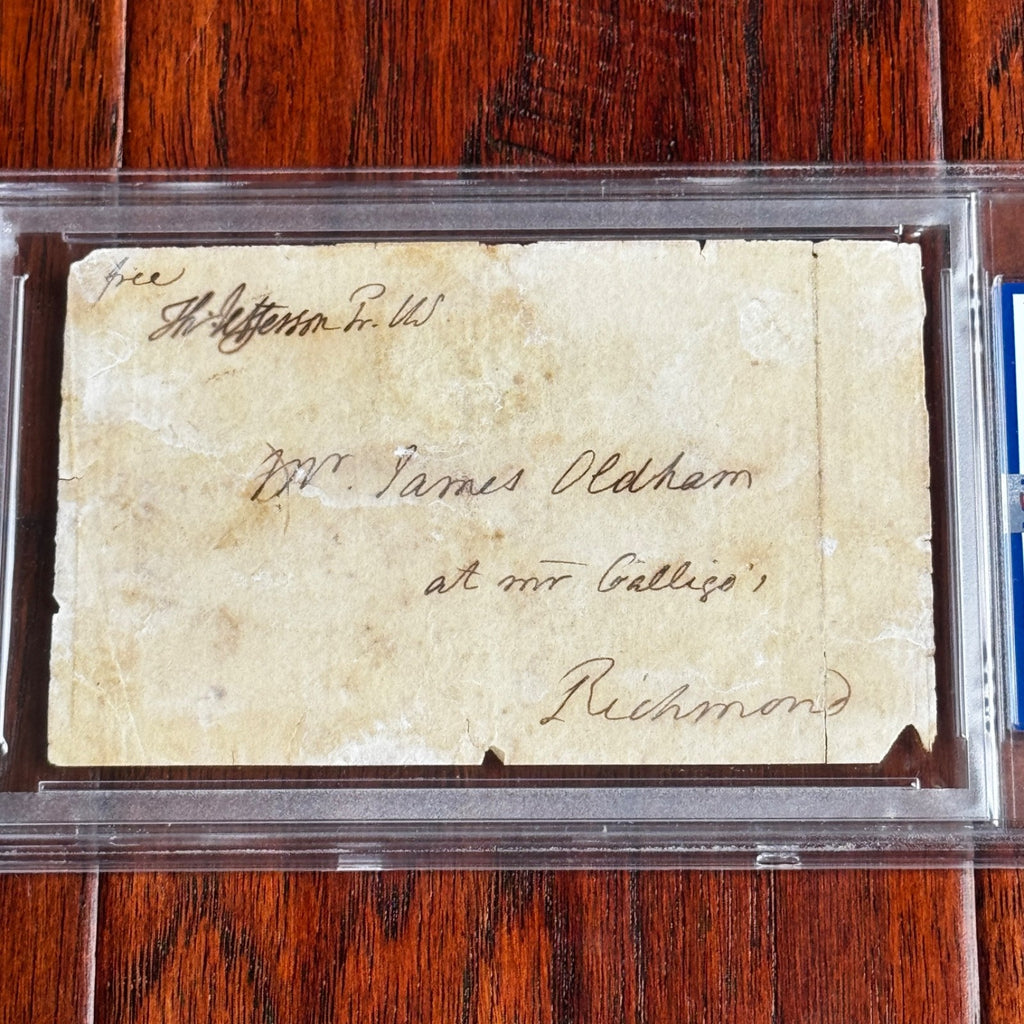 free
Th: Jefferson Pr. US.
Mr. James Oldham
at mr Galligo's
Richmond